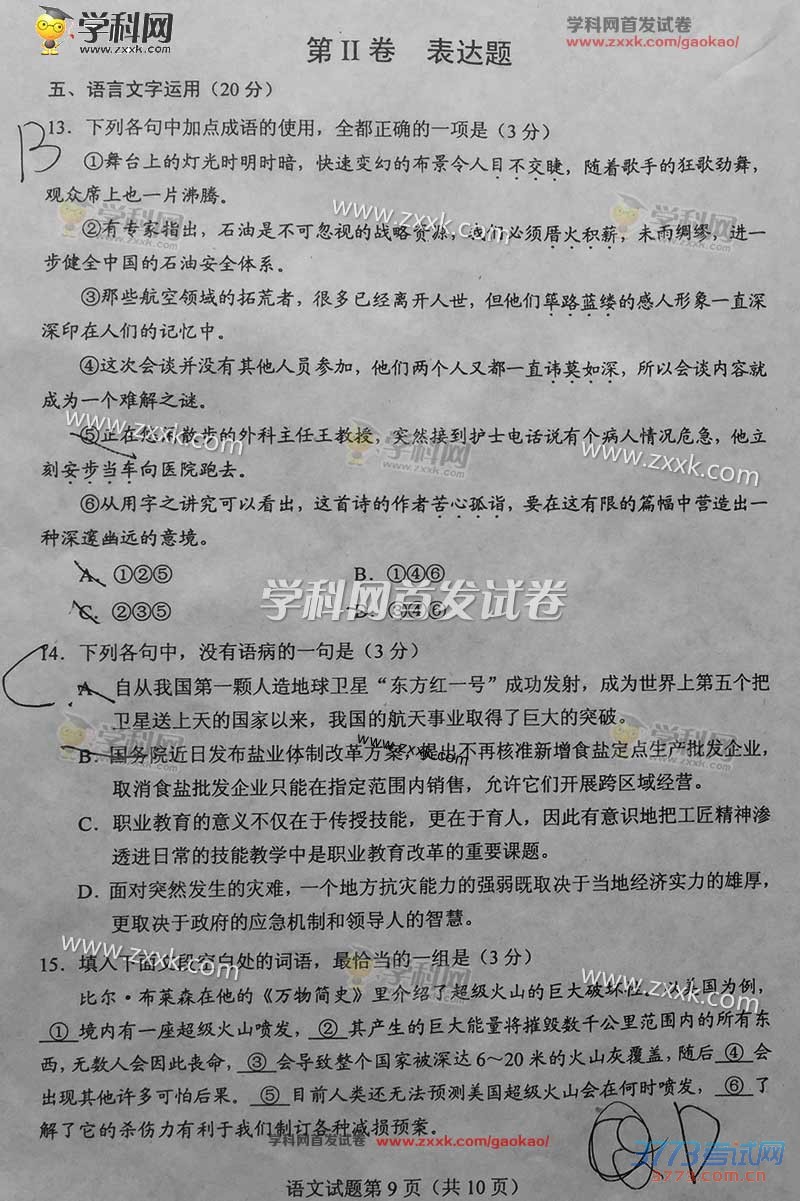 学科网
www.zxxk.com
学科网首发试卷
www.zxxk.com/gaokao/
第 II 卷 表达题
五、语言文字运用（20 分）
B
13．下列各句中加点成语的使用，全都正确的一项是（3 分）
①舞台上的灯光时明时暗，快速变幻的布景令人目不交睫，随着歌手的狂歌劲舞，
观众席上也一片沸腾。
②有专家指出，石油是不可忽视的战略资源，我们必须厝火积薪，未雨绸缪，进一
步健全中国的石油安全体系。
③那些航空领域的拓荒者，很多已经离开人世，但他们筚路蓝缕的感人形象一直深
深印在人们的记忆中。
④这次会谈并没有其他人员参加，他们两个人又都一直讳莫如深，所以会谈内容就
成为一个难解之谜。
⑤正在悠闲散步的外科主任王教授，突然接到护士电话说有个病人情况危急，他立
刻安步当车向医院跑去。
⑥从用字之讲究可以看出，这首诗的作者苦心孤诣，要在这有限的篇幅中营造出一
种深邃幽远的意境。
A．①②⑤ B．①④⑥
C．②③⑤ D．③④⑥
学科网首发试卷
C
14．下列各句中，没有语病的一句是（3 分）
A．自从我国第一颗人造地球卫星“东方红一号”成功发射，成为世界上第五个把
卫星送上天的国家以来，我国的航天事业取得了巨大的突破。
B．国务院近日发布盐业体制改革方案，提出不再核准新增食盐定点生产批发企业，
取消食盐批发企业只能在指定范围内销售，允许它们开展跨区域经营。
C．职业教育的意义不仅在于传授技能，更在于育人，因此有意识地把工匠精神渗
透进日常的技能教学中是职业教育改革的重要课题。
D．面对突然发生的灾难，一个地方抗灾能力的强弱既取决于当地经济实力的雄厚，
更取决于政府的应急机制和领导人的智慧。
15．填入下面文段空白处的词语，最恰当的一组是（3 分）
比尔·布莱森在他的《万物简史》里介绍了超级火山的巨大破坏性。以美国为例，
①境内有一座超级火山喷发，②其产生的巨大能量将摧毁数千公里范围内的所有东
西，无数人会因此丧命，③会导致整个国家被深达 6～20 米的火山灰覆盖，随后④会
出现其他许多可怕后果。⑤目前人类还无法预测美国超级火山会在何时喷发，⑥了
解了它的杀伤力有利于我们制订各种减损预案。
学科网首发试卷 www.zxxk.com/gaokao/
语文试题第 9 页（共 10 页）
3773考试网
3773.com